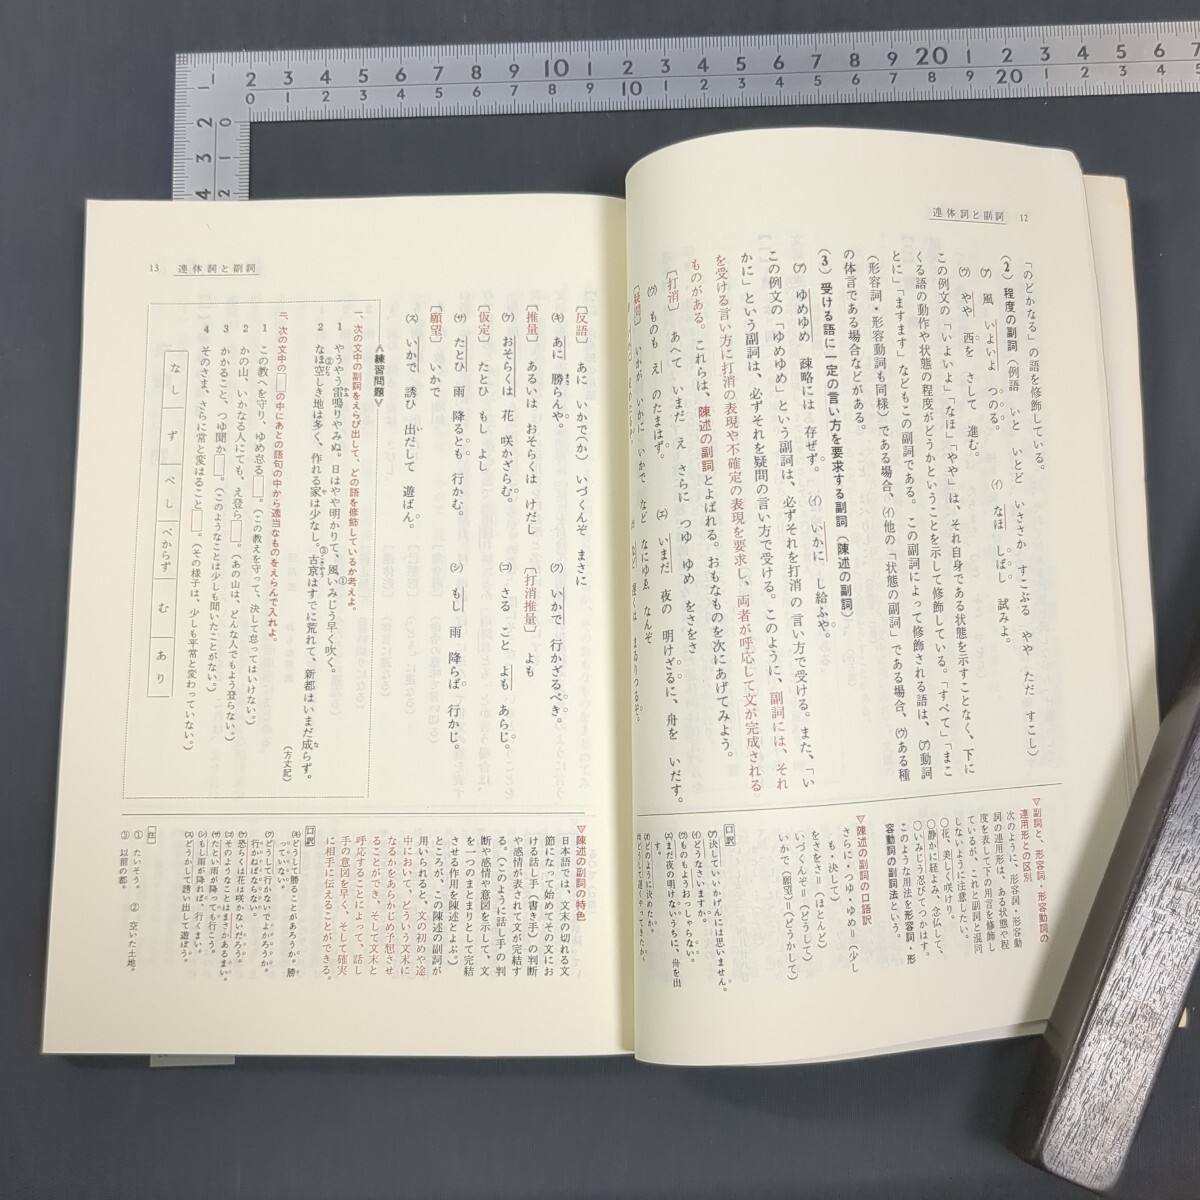 連体詞と副詞 12
「のどかなる」の語を修飾している。
(2) 程度の副詞 (例語 いと いとど いささか すこぶる やや ただ すこし)
(ア) 風 いよいよ つのる。 (イ) なほ しばし 試みよ。
(ウ) やや 西を さして 進む。
この例文の「いよいよ」「なほ」「やや」は、それ自身である状態を示すことなく、下に
くる語の動作や状態の程度がどうかということを示して修飾している。「すべて」「まこ
とに」「ますます」などもこの副詞である。この副詞によって修飾される語は、(ア)動詞
(形容詞・形容動詞も同様)である場合、(イ)他の「状態の副詞」である場合、(ウ)ある種
の体言である場合などがある。
(3) 受ける語に一定の言い方を要求する副詞 (陳述の副詞)
(ア) ゆめゆめ 疎略には 存ぜず。 (イ) いかに し給ふや。
この例文の「ゆめゆめ」という副詞は、必ずそれを打消の言い方で受ける。また、「い
かに」という副詞は、必ずそれを疑問の言い方で受ける。このように、副詞には、それ
を受ける言い方に打消の表現や不確定の表現を要求し、両者が呼応して文が完成される
ものがある。これらは、陳述の副詞とよばれる。おもなものを次にあげてみよう。
〔打消〕 あへて いまだ え さらに つゆ ゆめ をさをさ
(ウ) ものも え のたまはず。 (エ) いまだ 夜の 明けざるに、舟を いだす。
〔疑問〕 いかが いかに いかで など なにゆゑ なんぞ
▽副詞と、形容詞・形容動詞の
連用形との区別
次のように、形容詞・形容動
詞の連用形は、ある状態や程
度を表して下の用言を修飾し
ているが、これと副詞と混同
しないように注意したい。
○花、美しく咲けり。
○静かに経よみ、念仏して、
○いみじう忍びてつかはす。
このような用法を形容詞・形
容動詞の副詞法という。
▽陳述の副詞の口語訳
さらに・つゆ・ゆめ=(少し
も・決して)
をさをさ=(ほとんど)
いづくんぞ=(どうして)
いかで(願望)=(どうかして)
口訳
(ア)決していいかげんには思いません。
(イ)どうなさいますか。
(ウ)ものもようおっしゃらない。
(エ)まだ夜の明けないうちに、舟を出
(オ)どのように決めたか。
13 連体詞と副詞
〔反語〕 あに いかで(か) いづくんぞ まさに
(キ) あに 勝らんや。 (ク) いかで 行かざるべき。
〔推量〕 あるいは おそらくは けだし 〔打消推量〕 よも
(ケ) おそらくは 花 咲かざらむ。 (コ) さる こと よも あらじ。
〔仮定〕 たとひ もし よし
(サ) たとひ 雨 降るとも 行かむ。 (シ) もし 雨 降らば 行かじ。
〔願望〕 いかで
(ス) いかで 誘ひ 出だして 遊ばん。
∧練習問題∨
一、次の文中の副詞をえらび出して、どの語を修飾しているか考えよ。
1 やうやう雷鳴りやみぬ。日はやや明かりて、風いみじう①早く吹く。
2 なほ空しき②地は多く、作れる家は少なし。古京③はすでに荒れて、新都はいまだ成らず。
(方丈記)
二、次の文中の□の中にあとの語句の中から適当なものをえらんで入れよ。
1 この教へを守り、ゆめ怠る□。(この教えを守って、決して怠ってはいけない。)
2 かの山、いかなる人にても、え登ら□。(あの山は、どんな人でもよう登らない。)
3 かかること、つゆ聞か□。(このようなことは少しも聞いたことがない。)
4 そのさま、さらに常と変はること□。(その様子は、少しも平常と変わっていない。)
なし ず べし べからず む あり
▽陳述の副詞の特色
日本語では、文末の切れる文
節になって始めてその文にお
ける話し手(書き手)の判断
や感情が表されて文が完結す
る。(このように話し手の判
断や感情や意図を示して、文
を一つのまとまりとして完結
させる作用を陳述とよぶ。)
ところが、この陳述の副詞が
用いられると、文の初めや途
中において、どういう文末に
なるかをあらかじめ予想させ
ることができ、そして文末と
呼応することによって、話し
手の意図を早く、そして確実
に相手に伝えることができる。
口訳
(キ)どうして勝ることがあろうか。勝
っていない。
(ク)どうして行かないでよかろうか。
行かねばならない。
(ケ)恐らくは花は咲かないだろう。
(コ)そのようなことはまさかあるまい。
(サ)たとい雨が降っても行こう。
(シ)もし雨が降れば、行くまい。
(ス)どうかして誘い出して遊ぼう。
注
① たいそう。 ② 空いた土地。
③ 以前の都。